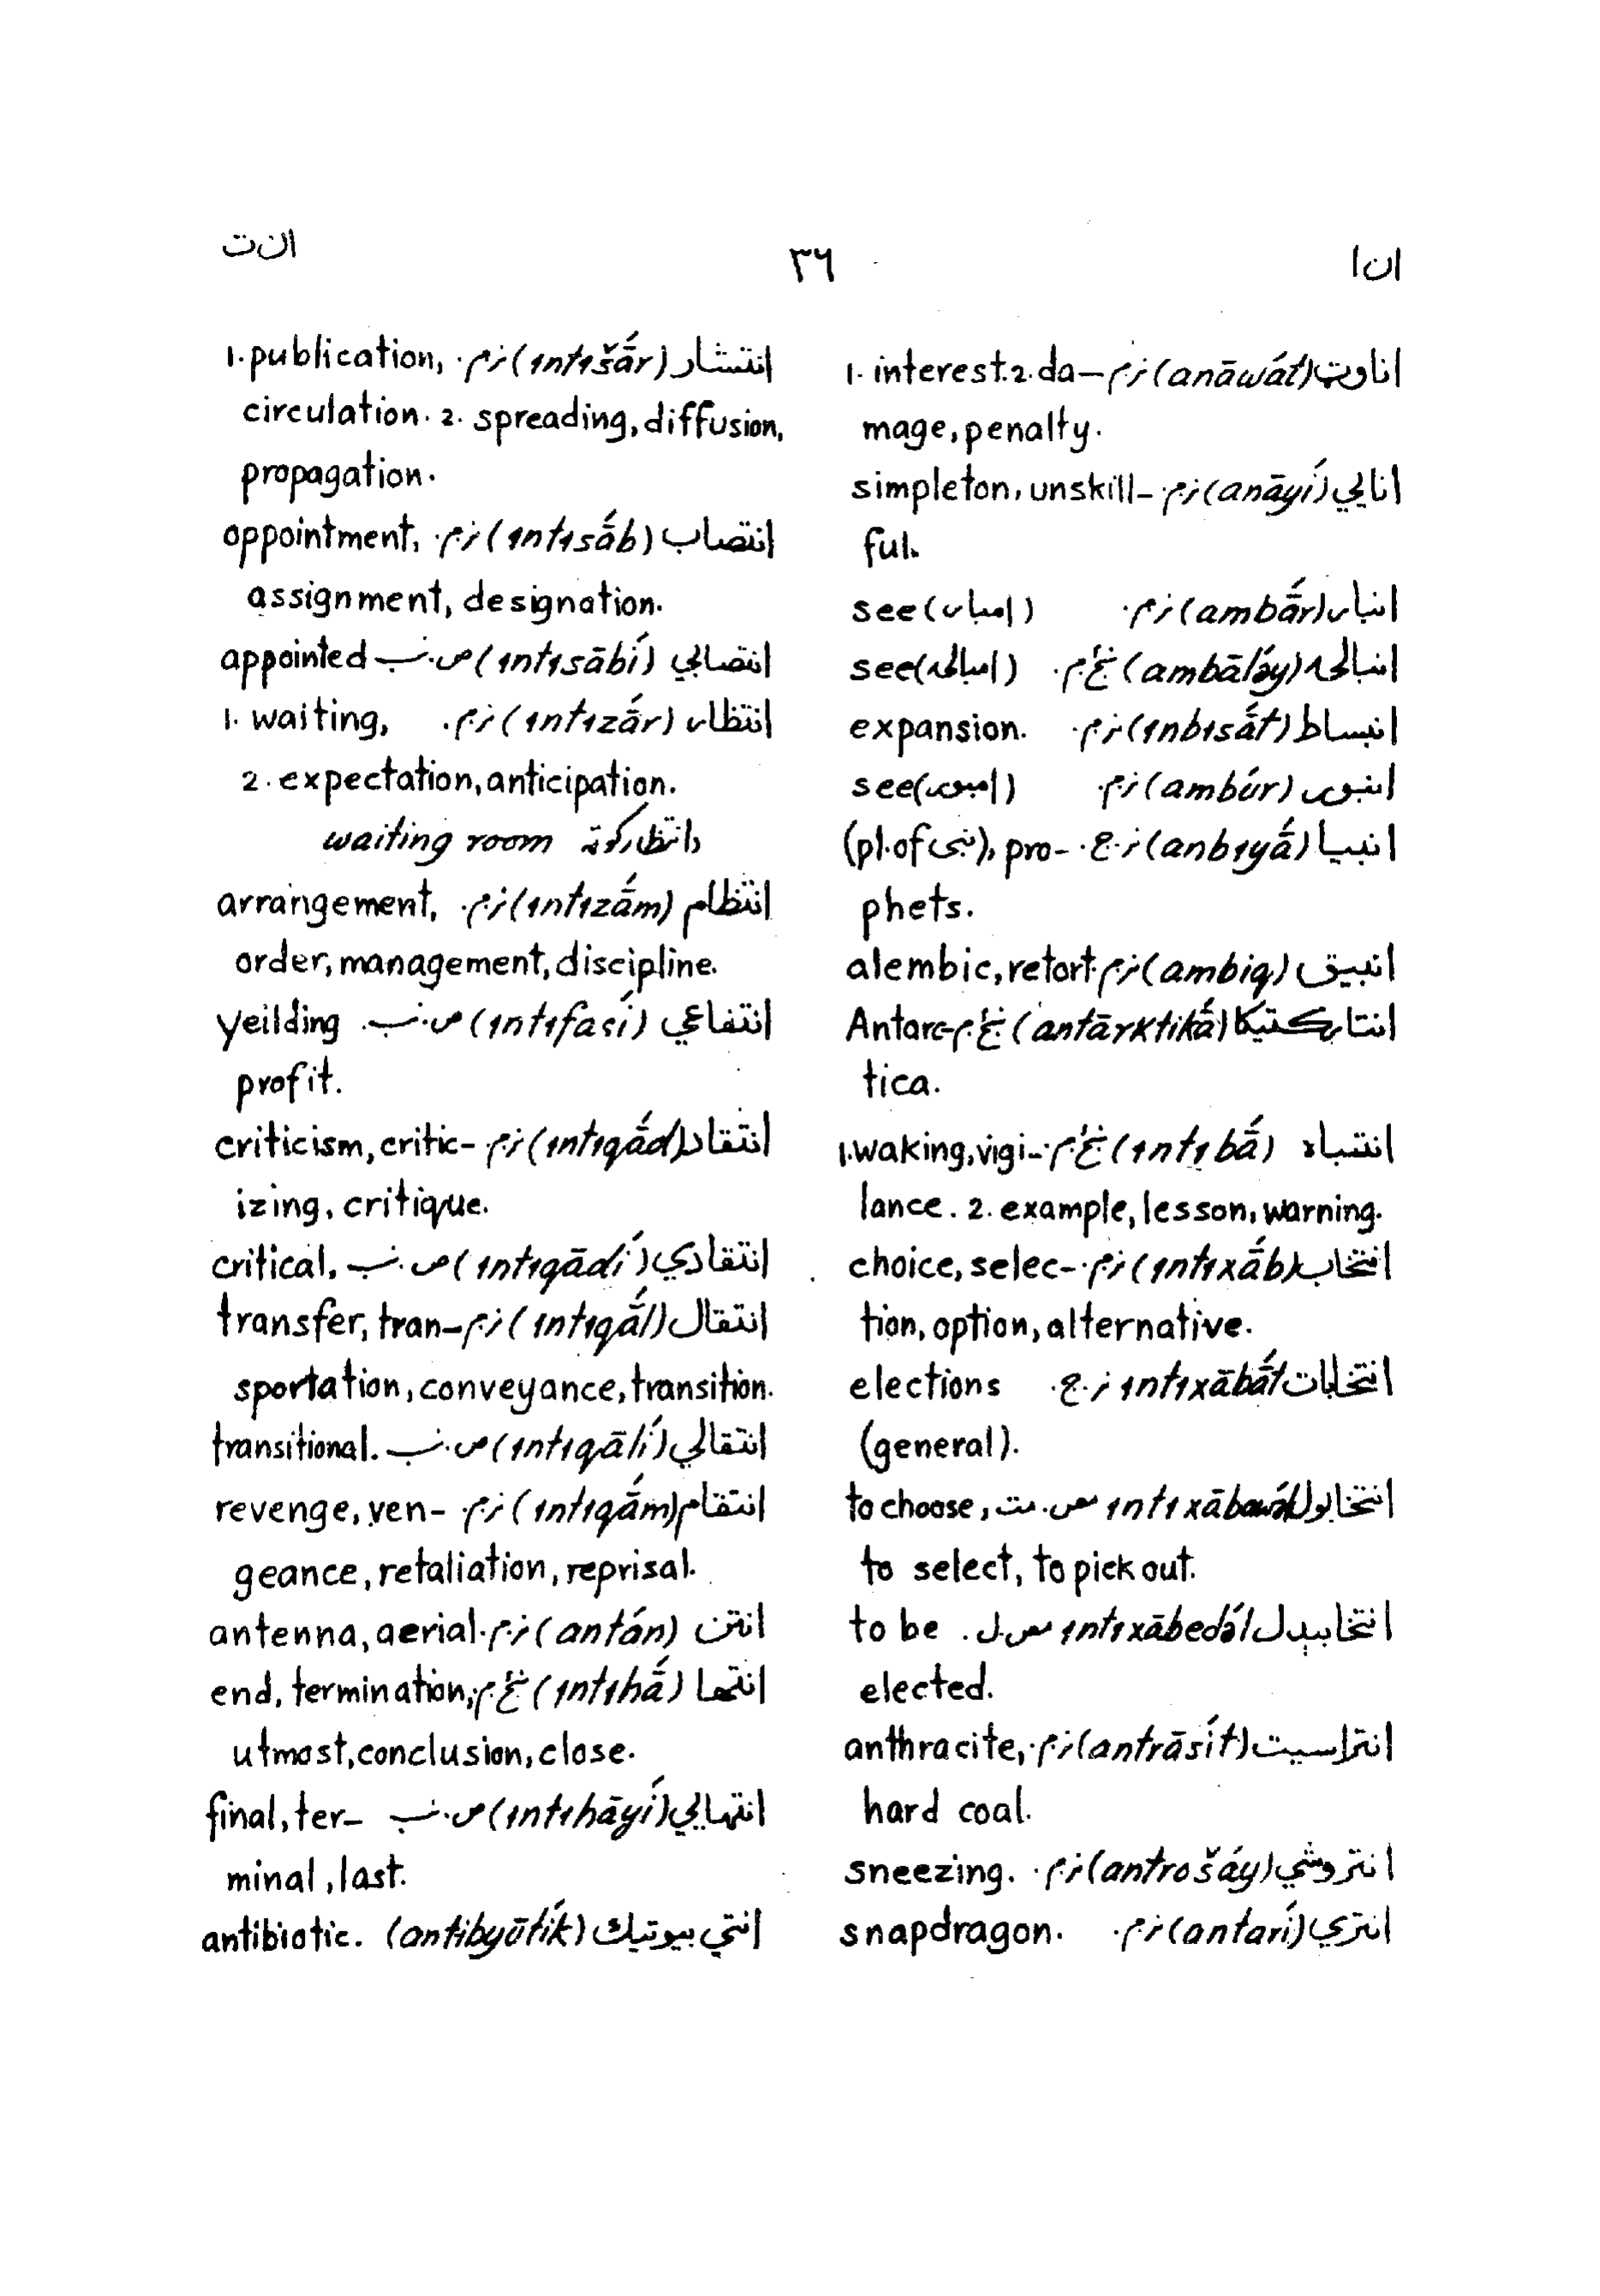 انا
٣٦
انت
اناوټ (anāwát) نر.م. 1. interest. 2. da-
mage, penalty.
انايي (anāyí) نر.م. simpleton, unskill-
ful.
انبار (ambā́r) نر.م. see (امبار)
انباله (ambālә́y) ښځ.م. see (امباله)
انبساط (ınbısā́t) نر.م. expansion.
انبور (ambúr) نر.م. see (امبور)
انبيا (anbıyā́) نر.ج. (pl. of نبي), pro-
phets.
انبيق (ambiq) نر.م. alembic, retort
انتارکتيکا (antārktikā́) ښځ.م. Antarc-
tica.
انتباه (ıntıbā́) ښځ.م. 1. waking, vigi-
lance. 2. example, lesson, warning.
انتخاب (ıntıxā́b) نر.م. choice, selec-
tion, option, alternative.
انتخابات ıntıxābā́t نر.ج. elections
(general).
انتخابول ıntıxābawә́l مص.مت. to choose,
to select, to pick out.
انتخابېدل ıntıxābedә́l مص.ل. to be
elected.
انتراسيت (antrāsít) نر.م. anthracite,
hard coal.
انتروشي (antrošáy) نر.م. sneezing.
انتري (antarí) نر.م. snapdragon.
انتشار (ıntıšā́r) نر.م. 1. publication,
circulation. 2. spreading, diffusion,
propagation.
انتصاب (ıntısā́b) نر.م. appointment,
assignment, designation.
انتصابي (ıntısābí) ص.نب appointed
انتظار (ıntızā́r) نر.م. 1. waiting,
2. expectation, anticipation.
دانتظارکوټه waiting room
انتظام (ıntızā́m) نر.م. arrangement,
order, management, discipline.
انتفاعي (ıntıfaıí) ص.نب. yeilding
profit.
انتقاد (ıntıqā́d) نر.م. criticism, critic-
izing, critique.
انتقادي (ıntıqādí) ص.نب critical,
انتقال (ıntıqā́l) نر.م. transfer, tran-
sportation, conveyance, transition.
انتقالي (ıntıqālí) ص.نب transitional.
انتقام (ıntıqā́m) نر.م. revenge, ven-
geance, retaliation, reprisal.
انتن (antán) نر.م. antenna, aerial
انتها (ıntıhā́) ښځ.م. end, termination,
utmost, conclusion, close.
انتهايي (ıntıhāyí) ص.نب final, ter-
minal, last.
انتي بيوتيك (antibyōtík) antibiotic.